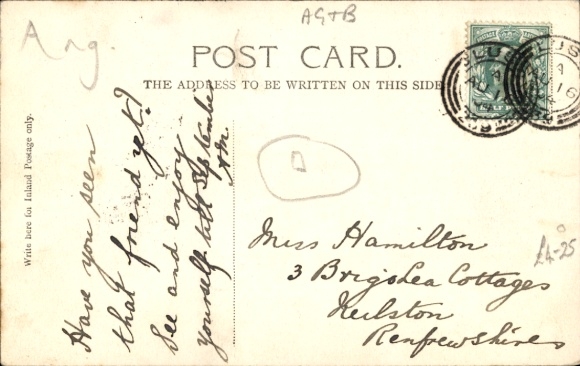 Ang.
AG+B
POST CARD.
THE ADDRESS TO BE WRITTEN ON THIS SIDE
Write here for Inland Postage only.
Have you seen
that friend yet?
See and enjoy
yourself till September
£4-25
Miss Hamilton
3 Brigslea Cottages
Neilston
Renfrewshire